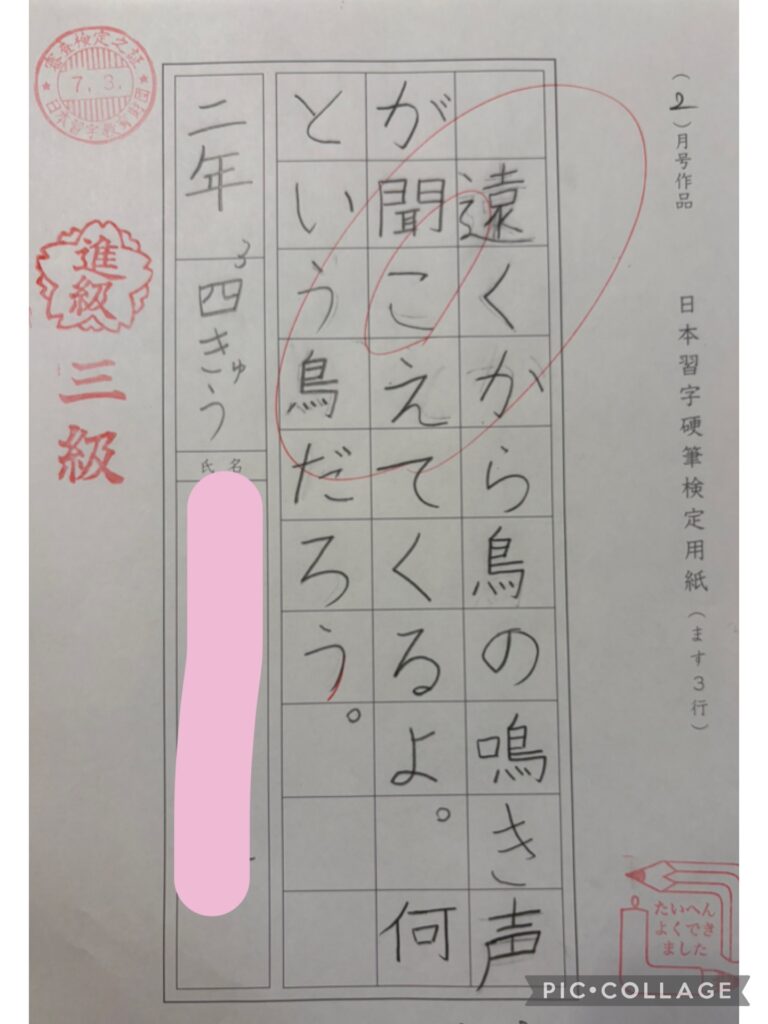 (2)月号作品
日本習字硬筆検定用紙(ます3行)
遠くから鳥の鳴き声
が聞こえてくるよ。何
という鳥だろう。
二年
3
四きゅう
氏名
審査検定之証
7.3.
日本習字教育財団
進級
三級
たいへん
よくでき
ました
PIC•COLLAGE